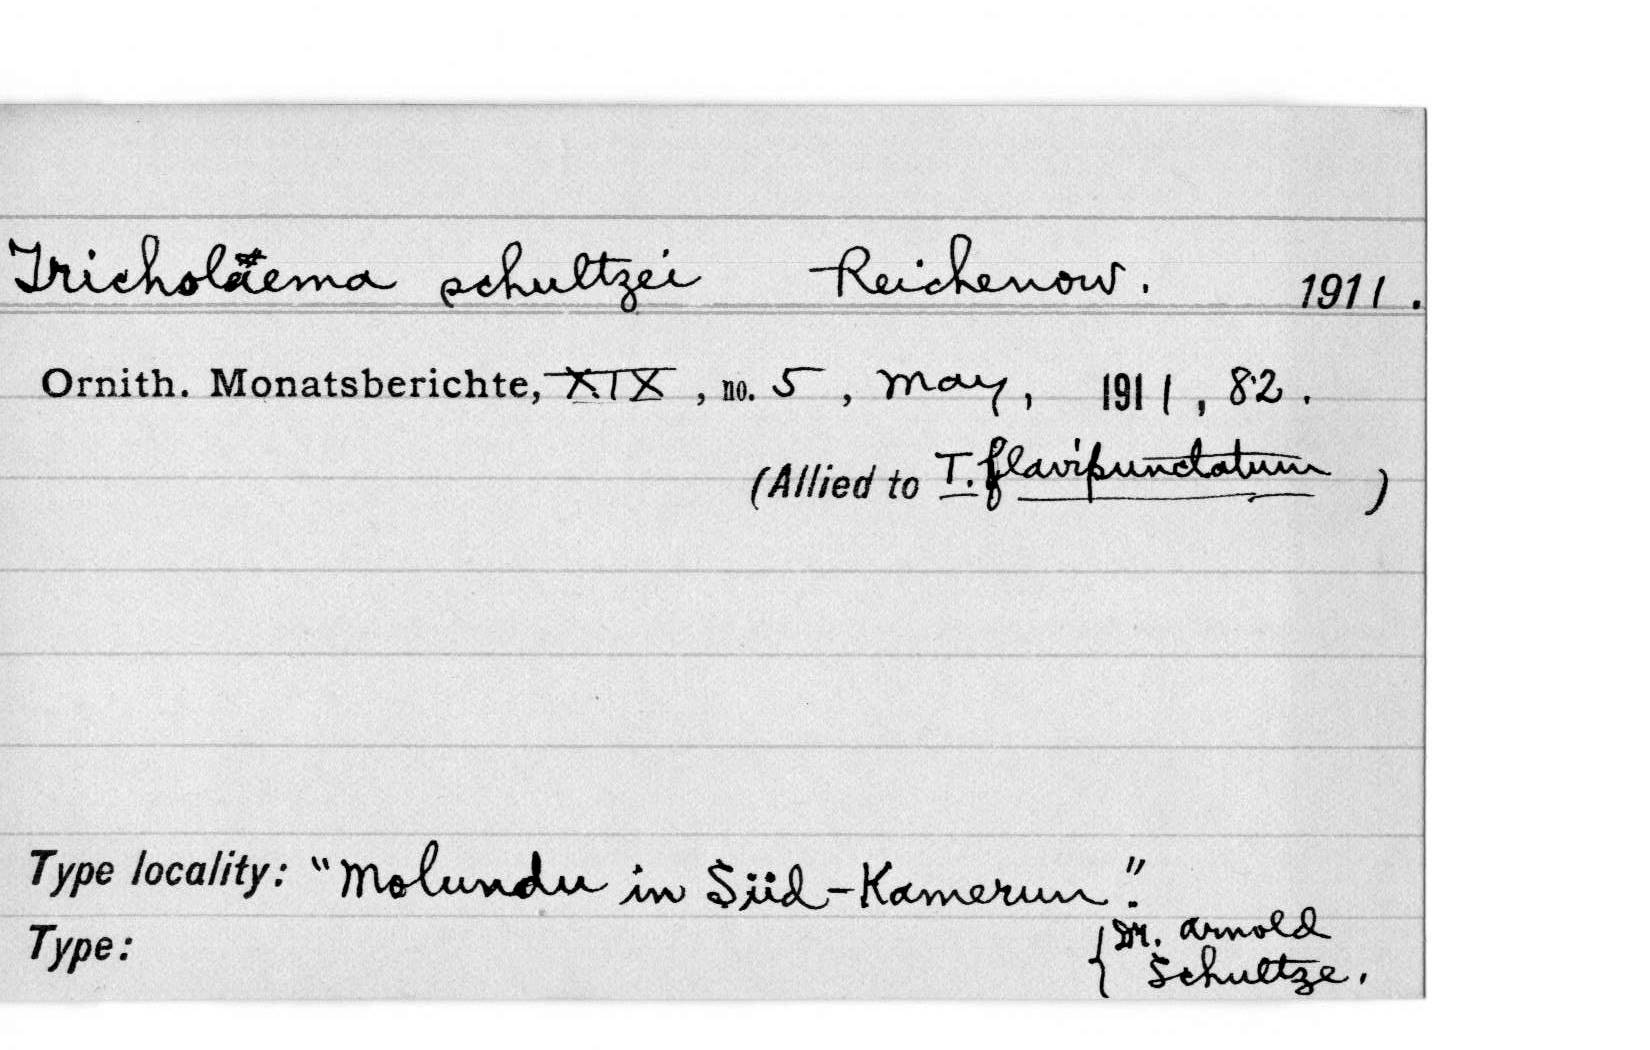 Tricholaema schultzei Reichenow. 1911.
Ornith. Monatsberichte, XIX, no. 5, May, 1911, 82.
(Allied to T. flavipunctatum)
Type locality: "Molundu in Süd-Kamerun".
Type: {Dr. Arnold
Schultze.